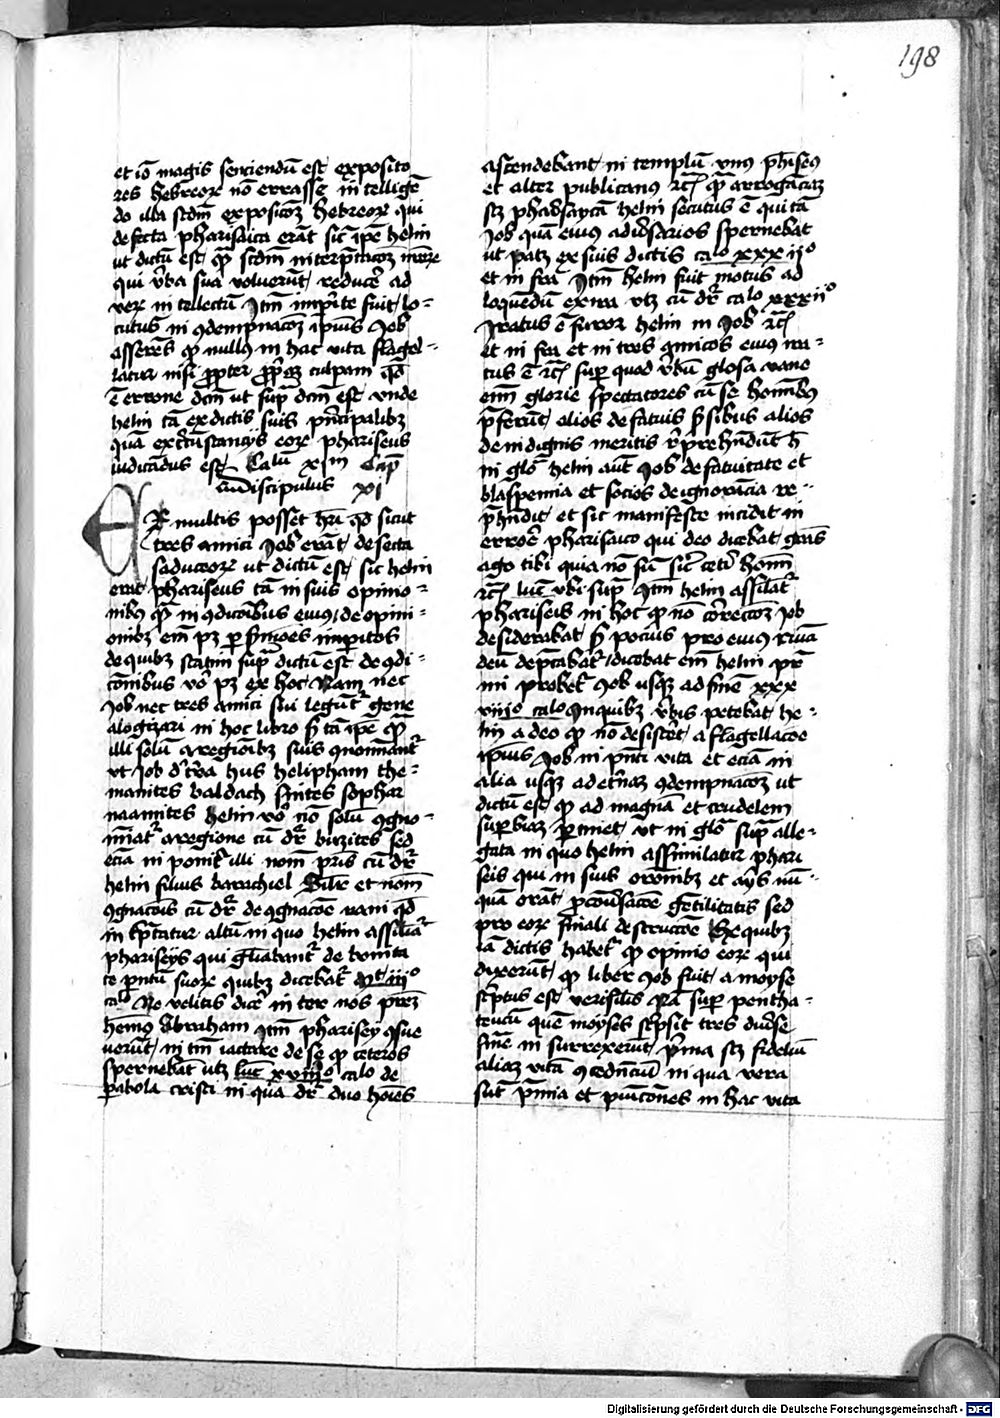 198
et iō magis senciendū est exposito
res hebreoꝝ nō errasse in tellige
do illa scdm exposicōꝫ hebreoꝝ qui
de secta pharisaica erāt sic ipe helin
ut dictū est qp scdm interptacōꝫ
qui v̄ba sua voluerūt reducē ad
veꝝ in tellectū Itm fuit lo-
cutus in 9dempnacoꝫ ipius Job
asserēs qp nullus in hac vita flagel-
latur nisi propter culpam qd
ē errone dcm ut sup dcm est vnde
helin tā ex dictis suis pncipalibꝫ
quā excircūstancijs eoꝝ phariseus
iudicādus est Calū Cap
discipulus xi
Ex multis posset hri qd sicut
tres amici Job erāt de secta
saduceoꝝ ut dictū est sic helin
erat phariseus tā in suis opinio-
nibꝰ qp in 9dicōibus eius de opini-
onibꝫ em pꝫ per
de quibꝫ statim sup dictū est de 9di-
cōnibus vo pꝫ ex hoc Nam nec
Job nec tres amici sui legūtr gene
alogizari in hoc libro s tā ipe qp
illi solū a regioibꝫ suis 9nominatr
ut Job d tra hus helipham the-
manites baldach suites sophar
naamites helin vo no solū 9gno-
minatr a regione cū dr buzites sed
ecia in ponitr illi nom pris cū dr
helin filius barachiel Silr et nom
9gnacois cū dr de 9gnacoe rami qd
in tptatur altū in quo helin assiliatr
phariseys qui gliabantr de bonita
te pntū suoꝝ quibꝫ dicebatr mt iijo
calo Ne velitis dicē in ter nos prēꝫ
hēmꝰ Abraham Itm pharisey 9sue
uerūt in tm iactare de se qp ceteros
spernebāt utꝫ luc xviijo calo de
pabola cristi in qua dr duo hoies
ascendebant in templū vnꝰ phiseꝰ
et alter publicanꝰ rc qp arroganciaꝫ
scꝫ helin secutus ē qui tā
Job quā eius aduersarios spernebat
ut patꝫ ex suis dictis calo xxx ijo
et in fra Itm helin fuit motus ad
loquēdū ex ira utꝫ cū dr calo xxxijo
Iratus ē furor helin in Job rc
et in fra et in tres amicos eius ira-
tus ē rc sup quod v̄bū glosa vane
em glorie spectatores cū se homibꝰ
pferūt alios de fatuis alios
de indignis meritis rprehndūt h
in glo helin aut Job de fatuitate et
blasfemia et socios de ignorācia re-
phndit et sic manifeste incidit in
errorē pharisaico qui deo dicebat gras
ago tibi quia no sū sic cetēi hoim
rc luc vbi sup Itm helin assilatr
phariseis in hoc qp no correctōꝫ Job
desiderabat s pocius pro eius ruiā
deū depcabatr dicebat em helin pr
mi probetr Job usqꝫ ad finē xxx
iiijo calo In quibꝫ v̄bis petebat he-
lin a deo qp no desisteret a flagellacoe
ipius Job in pnti vita et ecia in
alia usqꝫ ad etnaꝫ 9dempnacoꝫ ut
dictū est qp ad magnā et crudelem
supbiaꝫ ptinet ut in glo sup alle-
gata in quo helin assimilatur phari
seis qui in suis oroibꝫ et ays nū-
quā orāt p cōusacōe gētilitatis sed
pro eoꝝ finali destructōe Ex quibꝫ
iā dictis habetr qp opinio eoꝝ qui
dixerūt qp liber Job fuit a moyse
scptus est verisilis Nā sup pentha-
teucū quē moyses scpsit tres diuse
sue in surrexerūt pma scꝫ fideliū
aliaꝫ vitā in qua vera
sūt pmia et punicōnes in hac vita
Digitalisierung gefördert durch die Deutsche Forschungsgemeinschaft - DFG